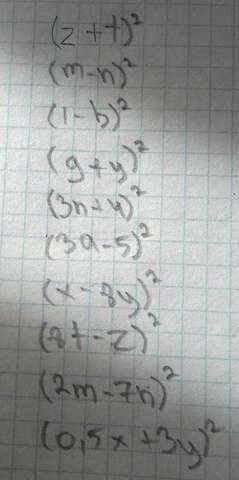 (z + t)²
(m - n)²
(1 - b)²
(g + y)²
(3n + 4)²
(3a - 5)²
(x - 8y)²
(8t - z)²
(2m - 7n)²
(0,5x + 3y)²